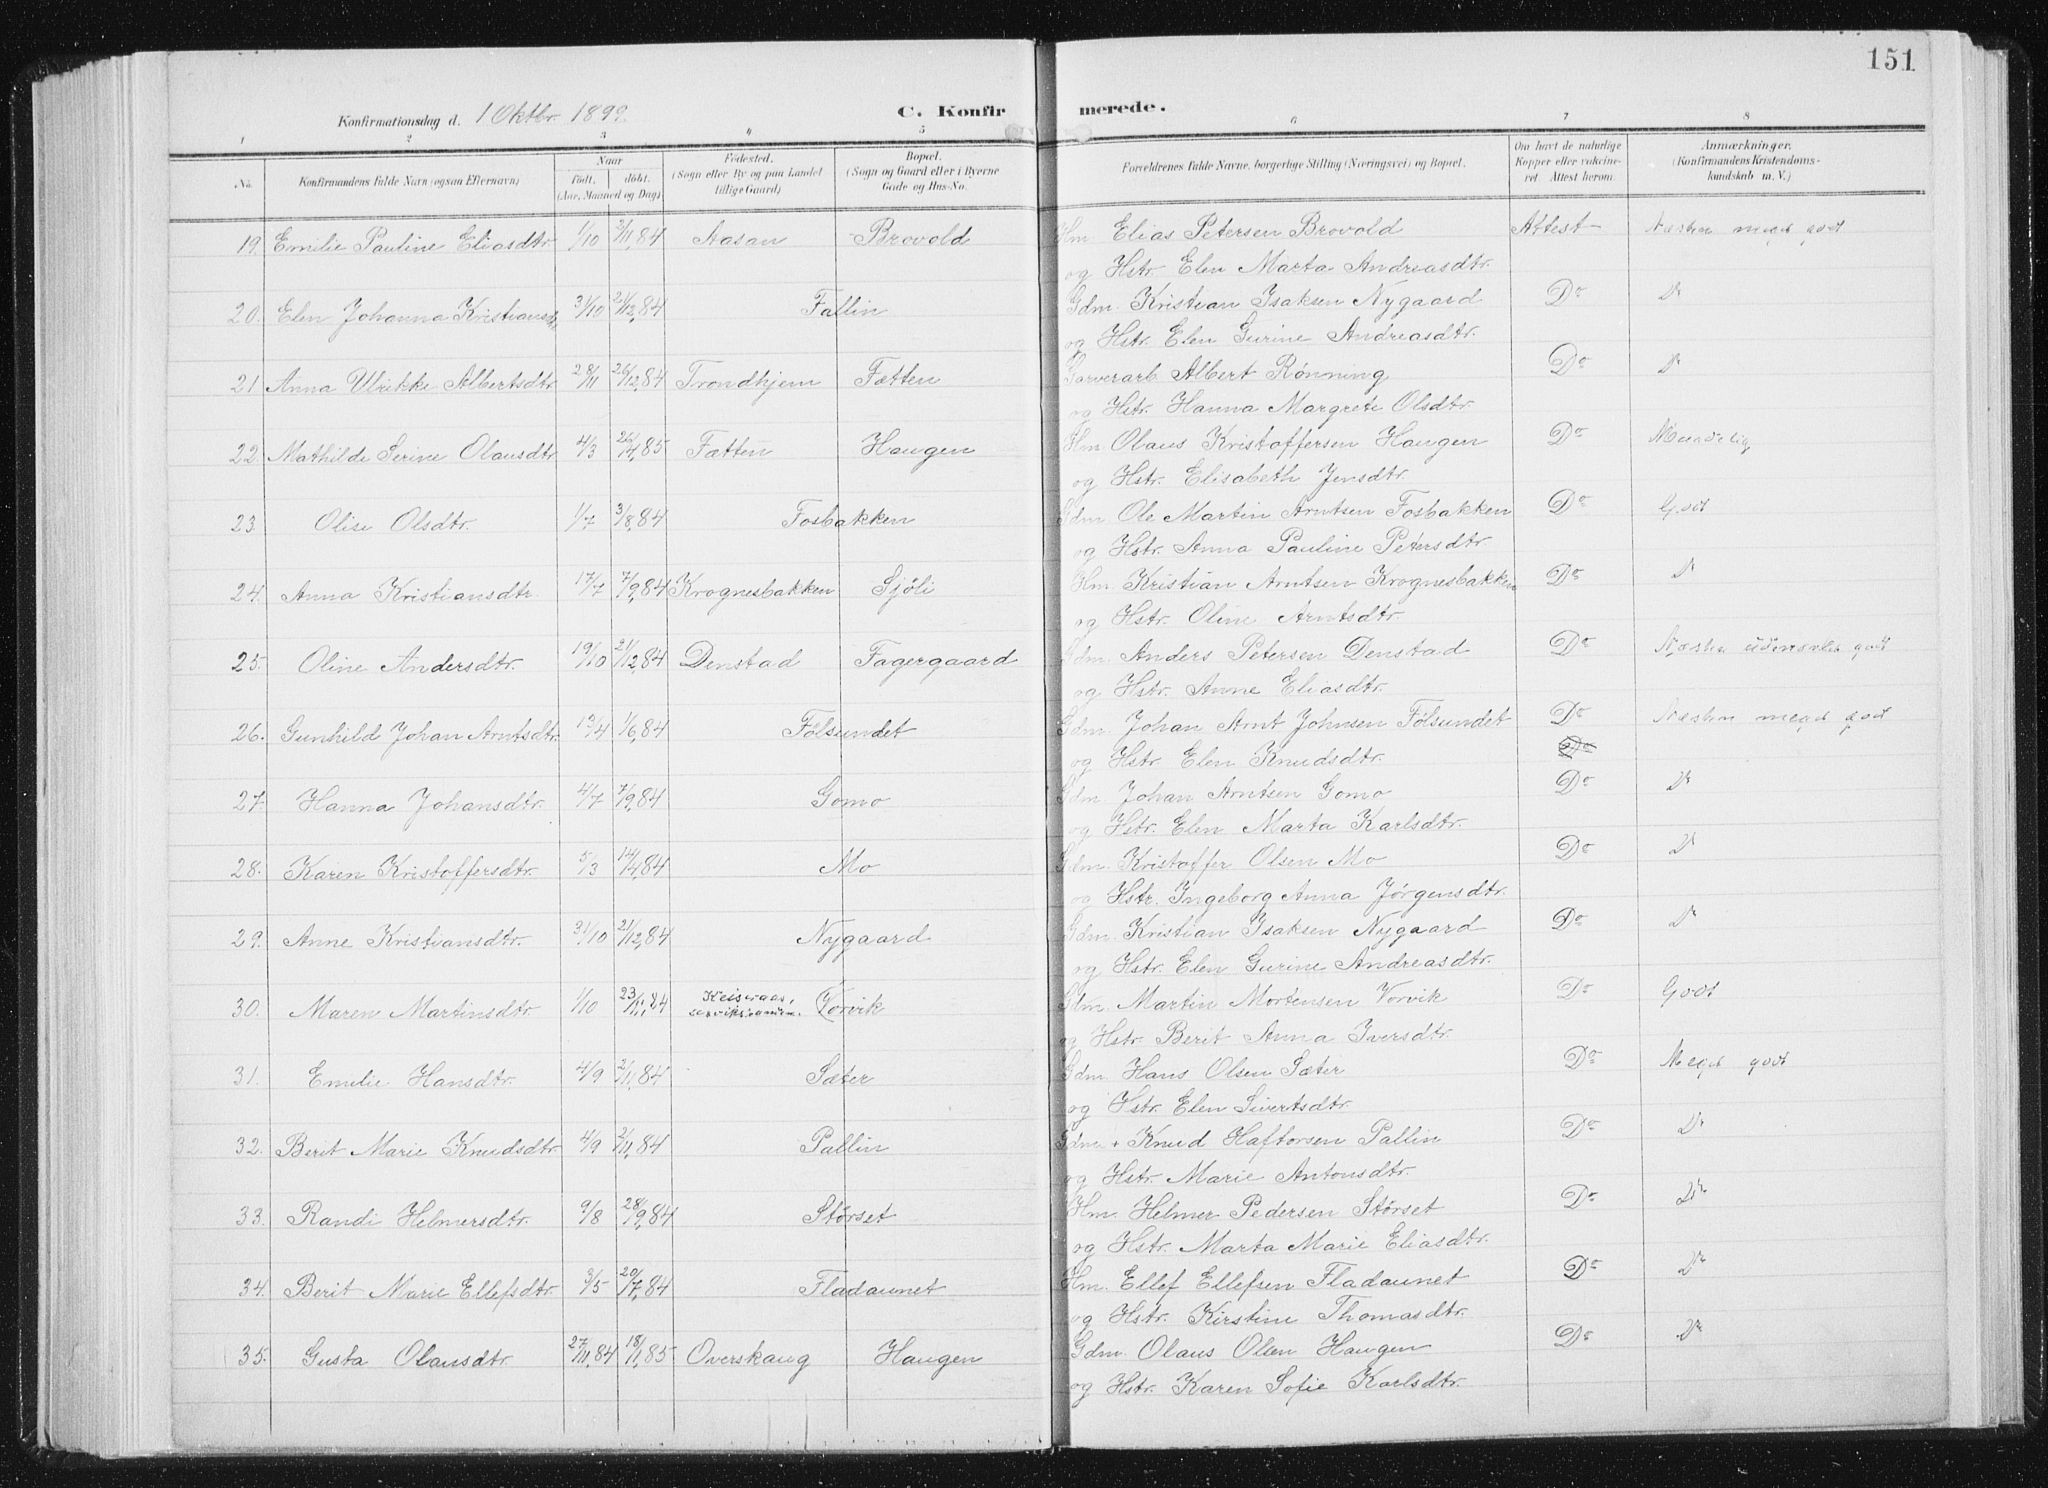 151
Konfirmationsdag d. 1 Oktbr. 1899. C. Konfir merede.
1 2 3 4 5 6 7 8
No. Konfirmandens fulde Navn (ogsaa Efternavn) Naar født, døbt. (Aar, Maaned og Dag) Fødested. (Sogn eller By og paa Landet tillige Gaard) Bopæl. (Sogn og Gaard eller i Byerne Gade og Hus-No. Forældrenes fulde Navne, borgerlige Stilling (Næringsvei) og Bopæl. Om havt de naturlige Kopper eller vaccineret. Attest herom. Anmærkninger. (Konfirmandens Kristendomskundskab m. V.)
19. Emilie Pauline Eliasdtr. 1/10 2/11,84 Aasan Brovold Hm. Elias Petersen Brovold Attest Næsten meget godt
og Hstr. Elen Marta Andreasdtr.
20. Elen Johanna Kristiansdtr. 31/10 21/12,84 Fallin Gdm. Kristian Isaksen Nygaard Do Do
og Hstr. Elen Gurine Andreasdtr.
21. Anna Ulrikke Albertsdtr. 28/11 26/12,84 Trondhjem Fætten Garverarb. Albert Rønning Do Do
og Hstr. Hanna Margrete Olsdtr.
22. Mathilde Serine Olausdtr. 4/3 26/4,85 Fætten Haugen Hm. Olaus Kristoffersen Haugen Do Maadelig
og Hstr. Elisabeth Jensdtr.
23. Olise Olsdtr. 1/7 3/8,84 Fosbakken Gdm. Ole Martin Arntsen Fosbakken Do Godt
og Hstr. Anna Pauline Petersdtr.
24. Anna Kristiansdtr. 17/7 7/9,84 Krognesbakken Sjöli Hm. Kristian Arntsen Krognesbakken Do Do
og Hstr. Oline Arntsdtr.
25. Oline Andersdtr. 19/10 21/12,84 Denstad Fagergaard Gdm. Anders Petersen Denstad Do Næsten udmerket godt
og Hstr. Anne Eliasdtr.
26. Gunhild Johan Arntsdtr. 13/4 1/6,84 Følsundet Gdm. Johan Arnt Johnsen Følsundet Do Næsten meget godt
og Hstr. Elen Knudsdtr. Do
27. Hanna Johansdtr. 4/7 7/9,84 Gomo Gdm. Johan Arntsen Gomo Do Do
og Hstr. Elen Marta Karlsdtr.
28. Karen Kristoffersdtr. 5/3 14/4,84 Mo Gdm. Kristoffer Olsen Mo Do Do
og Hstr. Ingeborg Anna Jørgensdtr.
29. Anne Kristiansdtr. 31/10 21/12,84 Nygaard Gdm. Kristian Isaksen Nygaard Do Do
og Hstr. Elen Gurine Andreasdtr.
30. Maren Martinsdtr. 1/10 23/11,84 Vorvik Gdm. Martin Mortensen Vorvik Do Godt
og Hstr. Berit Anna Iversdtr.
31. Emilie Hansdtr. 4/9 2/11,84 Sæter Gdm. Hans Olsen Sæter Do Meget godt
og Hstr. Elen Sivertsdtr.
32. Berit Marie Knudsdtr. 4/9 2/11,84 Pallin Gdm. + Knud Haftorsen Pallin Do Do
og Hstr. Marie Antonsdtr.
33. Randi Helmersdtr. 9/8 28/9,84 Størset Hm. Helmer Pedersen Størset Do Do
og Hstr. Marta Marie Eliasdtr.
34. Berit Marie Ellefsdtr. 3/5 20/7,84 Fladaunet Hm. Ellef Ellefsen Fladaunet Do Do
og Hstr. Kirstine Thomasdtr.
35. Gusta Olausdtr. 27/11,84 18/1,85 Overskaug Haugen Gdm. Olaus Olsen Haugen Do Do
og Hstr. Karen Sofie Karlsdtr.